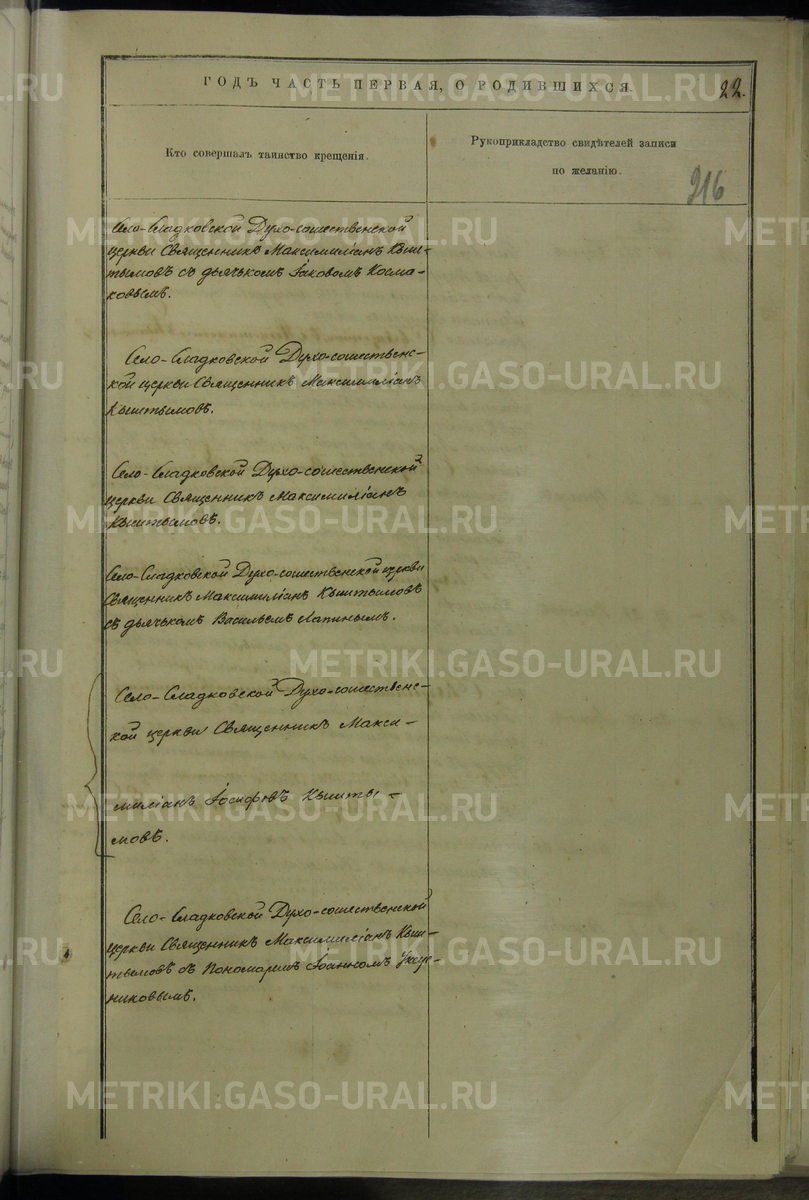 ГОДЪ ЧАСТЬ ПЕРВАЯ, О РОДИВШИХСЯ.
22.
Кто совершалъ таинство крещенія.
Рукоприкладство свидѣтелей записи
по желанію.
216
Село-Сладковской Духо-сошественской
церкви Священникъ Максимиліанъ Кыш-
тымовъ съ дьячькомъ Іаковомъ Косма-
ковымъ.
Село-Сладковской Духо-сошественс-
кой церкви Священникъ Максимиліанъ
Кыштымовъ.
Село-Сладковской Духо-сошественской
церкви Священникъ Максимиліанъ
Кыштымовъ.
Село-Сладковской Духо-сошественской церкви
Священникъ Максимиліанъ Кыштымовъ
съ дьячькомъ Васильемъ Лапинымъ.
Село-Сладковской Духо-сошественс-
кой церкви Священникъ Макси-
миліанъ Іосифовъ Кышты-
мовъ.
Село-Сладковской Духо-сошественской
церкви Священникъ Максимиліанъ Кыш-
тымовъ съ Пономаремъ Іоанномъ
никовымъ.
METRIKI.GASO-URAL.RU